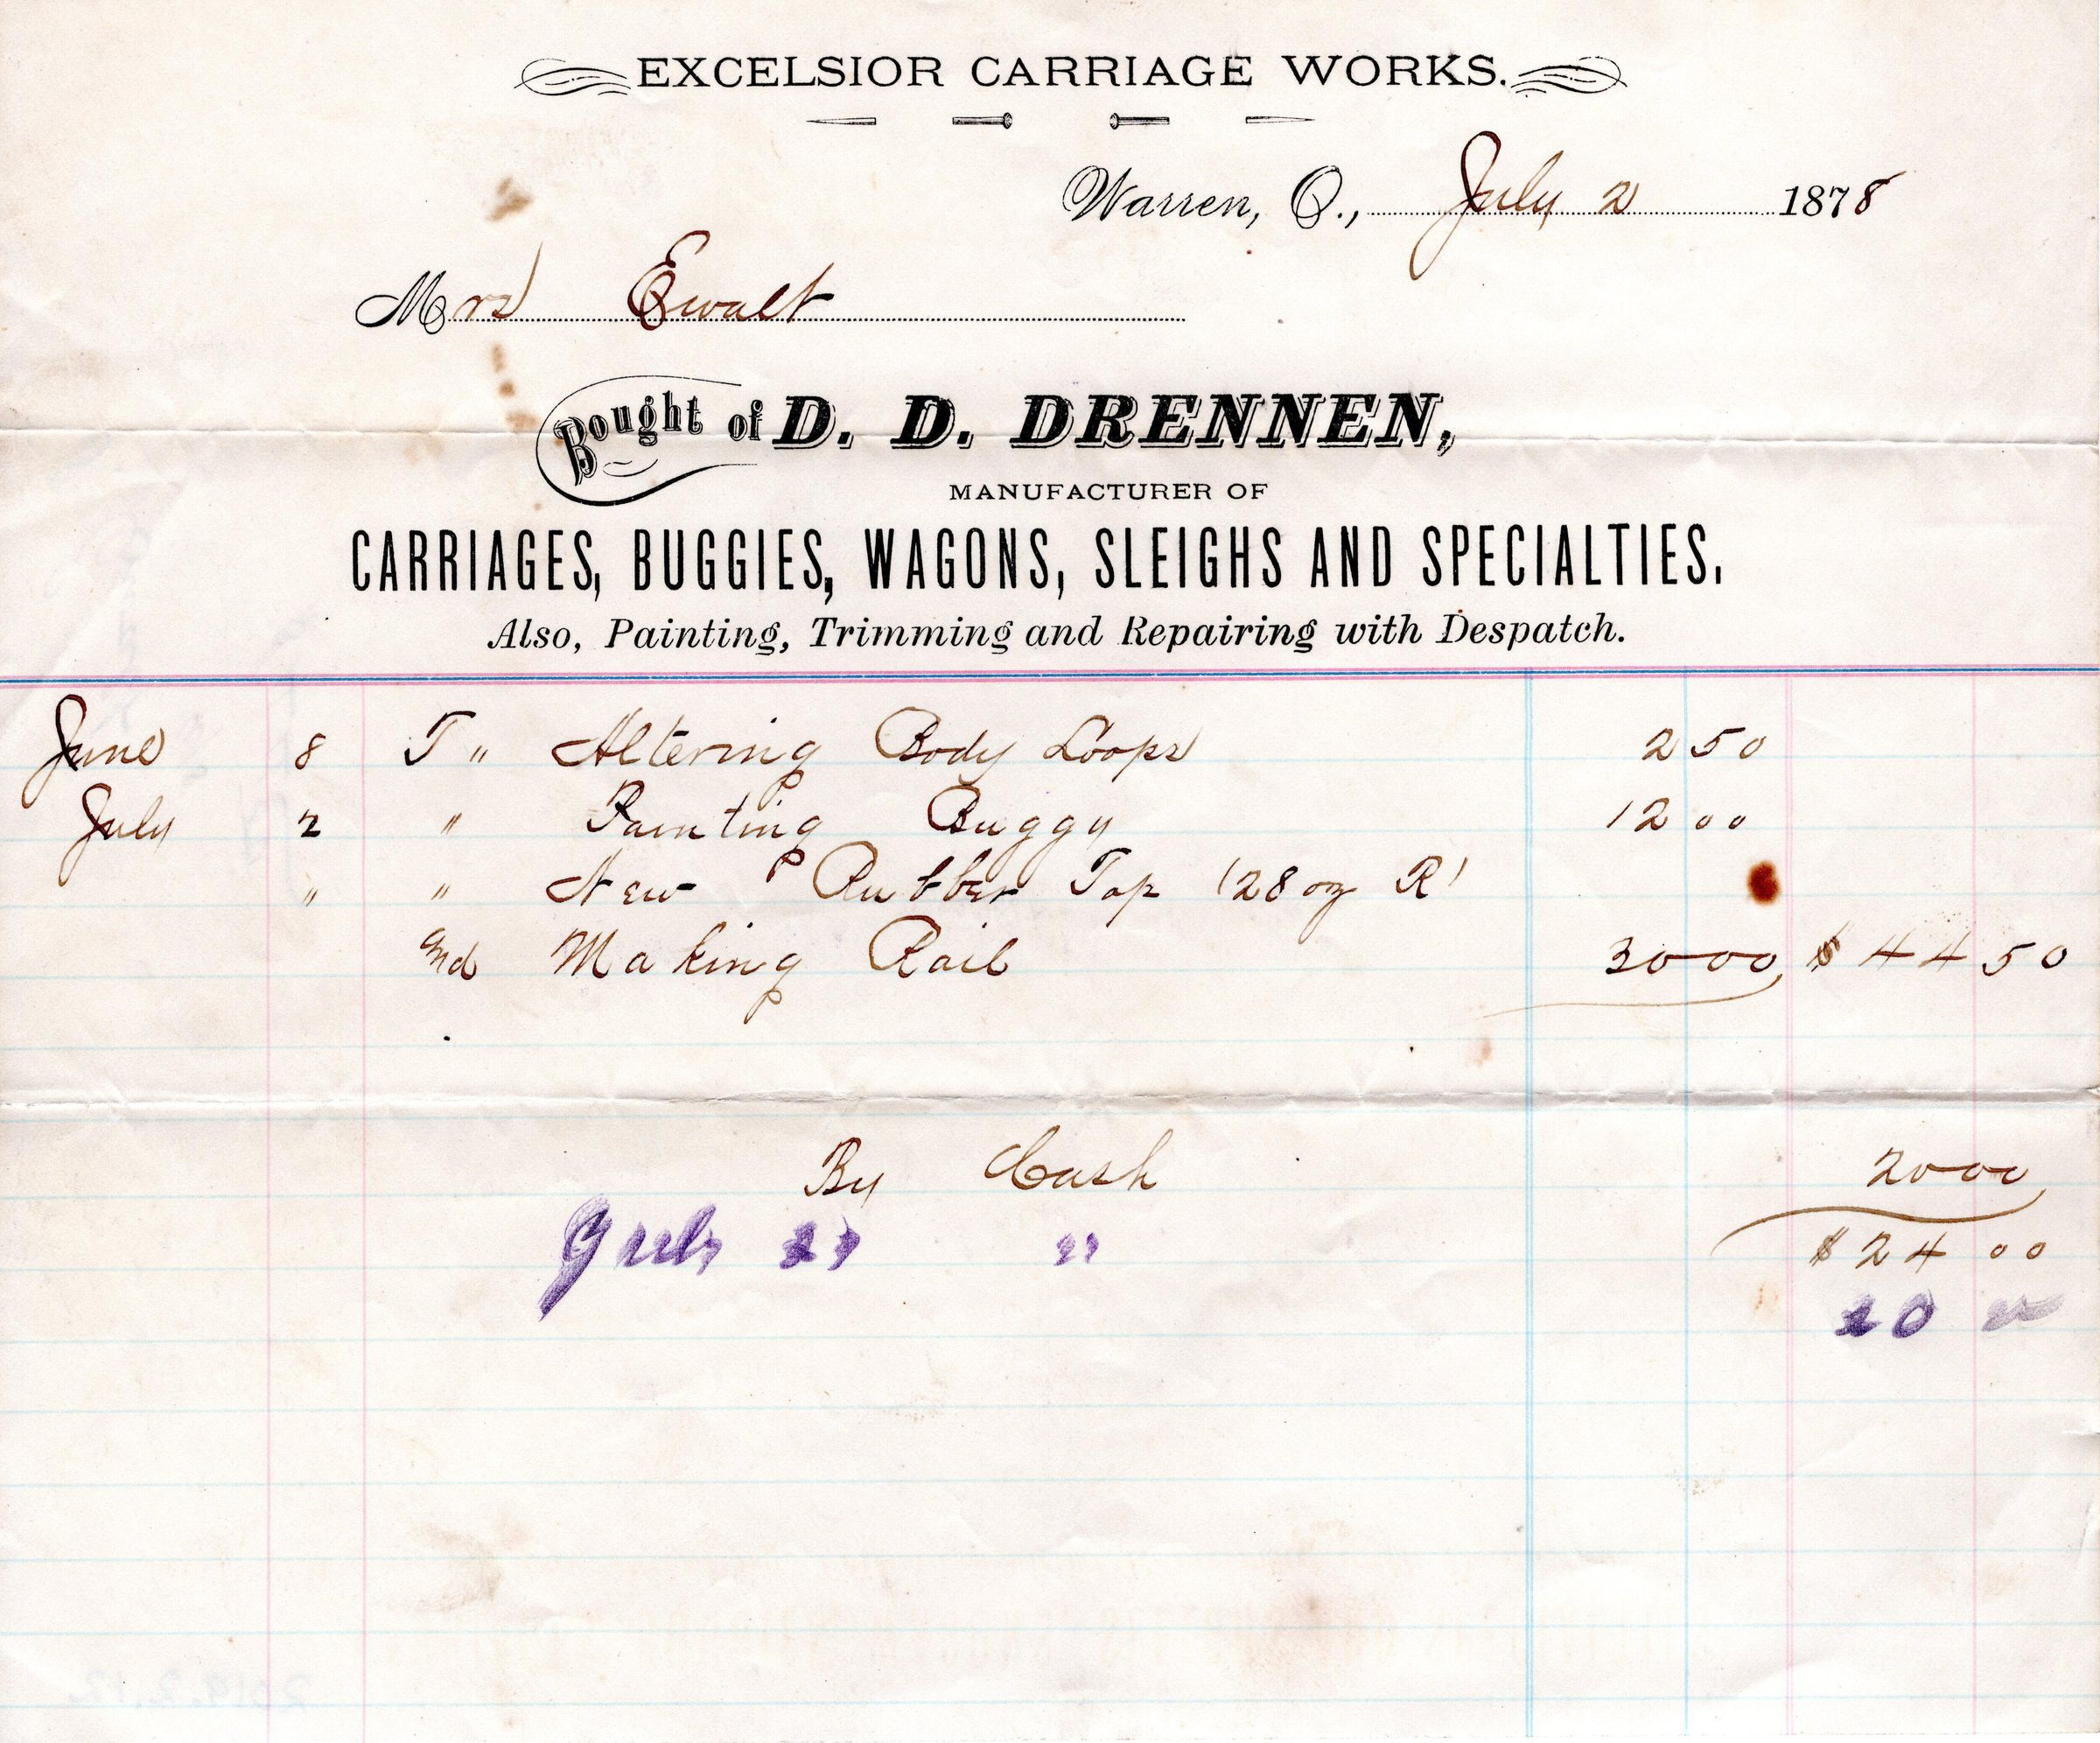 EXCELSIOR CARRIAGE WORKS.
Warren, O., July 2 1878
Mrs Ewalt
Bought of D. D. DRENNEN,
MANUFACTURER OF
CARRIAGES, BUGGIES, WAGONS, SLEIGHS AND SPECIALTIES.
Also, Painting, Trimming and Repairing with Despatch.
June 8 T " Altering Body Loops 2 50
July 2 " Painting Buggy 12 00
" " New Rubber Top (28 oz R) 
and Making Rail 30 00 $ 44 50
By Cash 20 00
$ 24 00
" "
20
2019.2.12